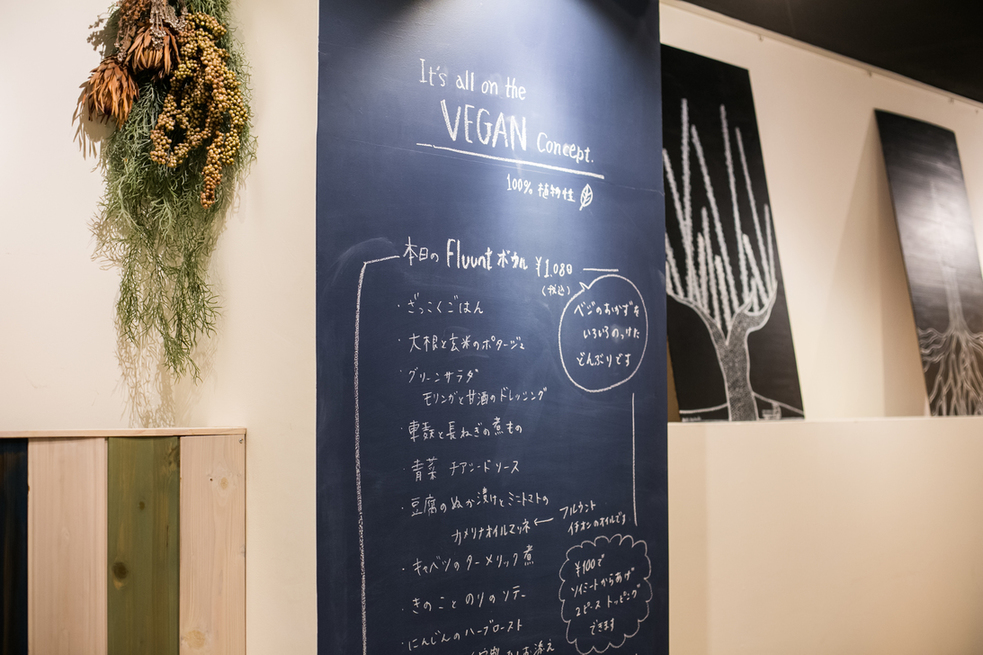 It's all on the
VEGAN Concept.
100% 植物性
本日の Fluunt ボウル ¥1,080
(税込)
ベジのおかずを
いろいろのっけた
どんぶりです
・ざっこくごはん
・大根と玄米のポタージュ
・グリーンサラダ
モリンガと甘酒のドレッシング
・車麩と長ねぎの煮もの
・青菜 チアシードソース
・豆腐のぬか漬けとミニトマトの
カメリナオイルマリネ ←
フルウント
イチオシのオイルです
・キャベツのターメリック煮
・きのことのりのソテー
・にんじんのハーブロースト
お添え
¥100で
ソイミートからあげ
2ピーストッピング
できます